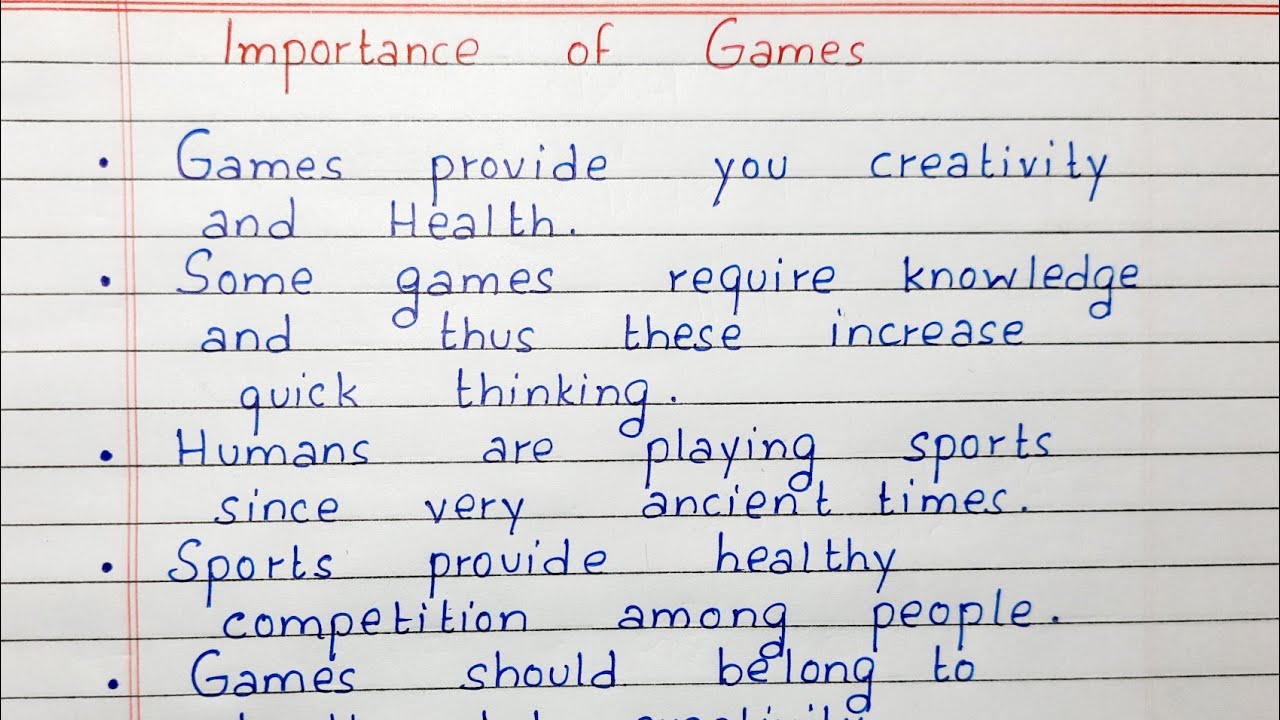 Importance of Games
• Games provide you creativity
and Health.
• Some games require knowledge
and thus these increase
quick thinking.
• Humans are playing sports
since very ancient times.
• Sports provide healthy
competition among people.
• Games should belong to
creativity